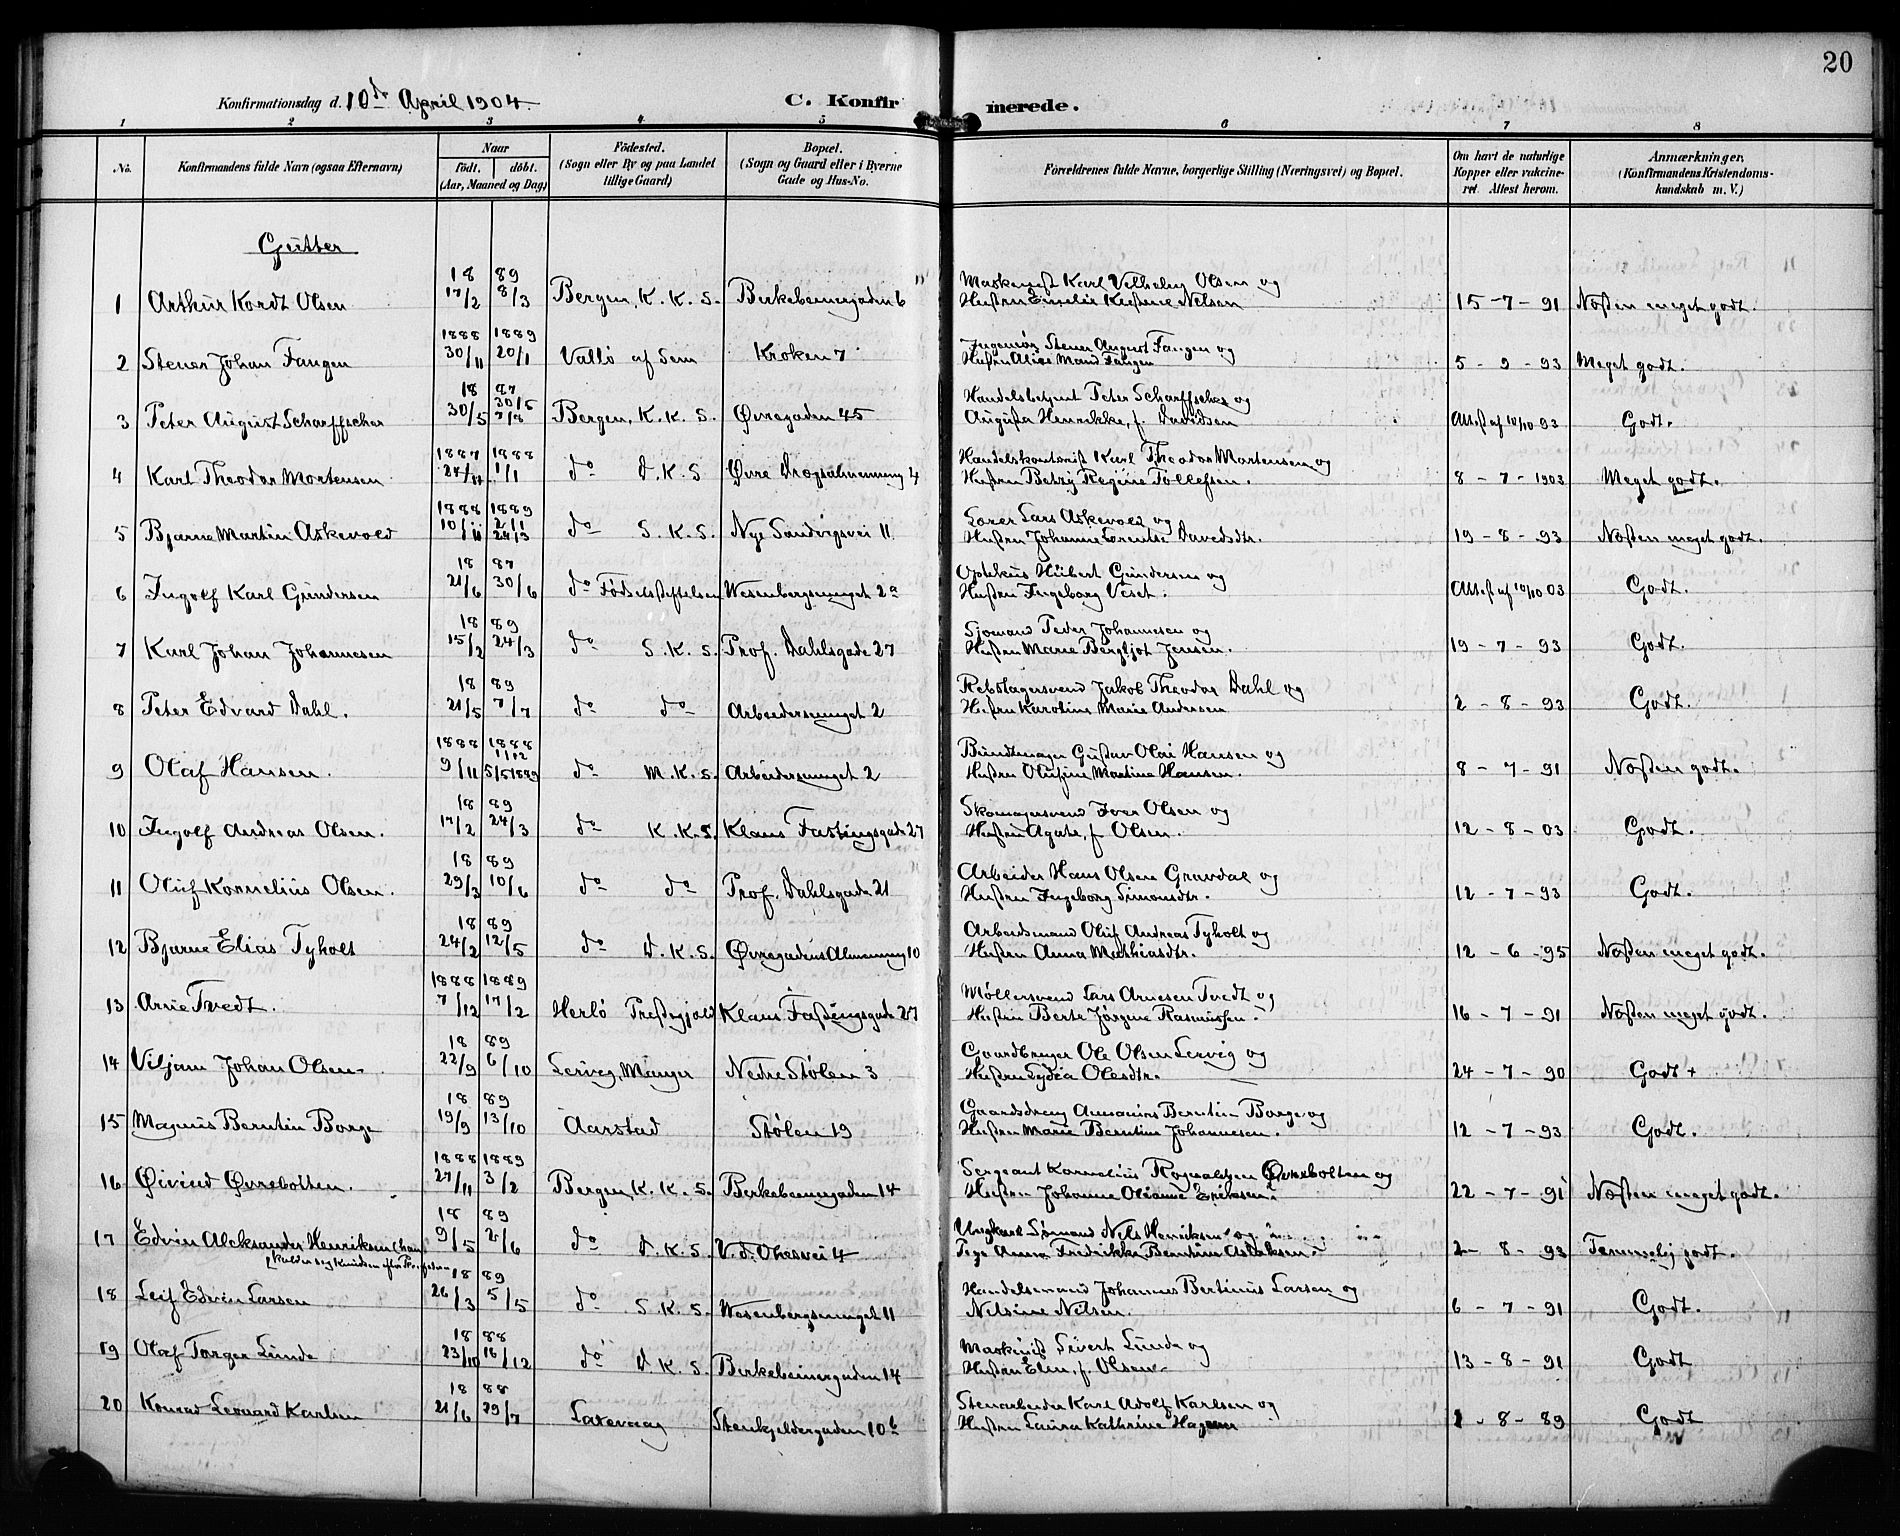 20
Konfirmationsdag d. 10de April 1904. C. Konfirmerede.
1 2 3 4 5 6 7 8
No. Konfirmandens fulde Navn (ogsaa Efternavn) Naar født. døbt. (Aar, Maaned og Dag) Fødested. (Sogn eller By og paa Landet tillige Gaard) Bopæl. (Sogn og Gaard eller i Byerne Gade og Hus-No. Forældrenes fulde Navne, borgerlige Stilling (Næringsvei) og Bopæl. Om havt de naturlige Kopper eller vakcineret. Attest herom. Anmærkninger. (Konfirmandens Kristendomskundskab m. V.)
Gutter
18 89
1 Arthur Kordt Olsen 17/2 8/3 Bergen, K. K. S. Birkebeinergaden 6 Maskinist Karl Vilhelm Olsen og
Hustru Emelie Kristine Nilsen 15-7-91 Næsten meget godt.
1888 1889
2 Stener Johan Fangen 30/11 20/1 Vallö af Sem Kroken 7 Ingeniør Stener August Fangen og
Hustru Alice Maud Fangen 5-9-93 Meget godt.
18 87
3 Peter August Scharffscher 30/5 30/5 7/8 Bergen, K. K. S. Øvregaden 45 Handelsbetjent Peter Scharffscher og
Augusta Henrikke, f. Davidsen Attest af 10/10 93 Godt.
1887 1888
4 Karl Theodor Mortensen 1/1 do D. K. S Øvre Dragsalmenning 4 Handelskontorist Karl Theodor Mortensen og
Hustru Betzy Regine Tollefsen. 8-7-1903 Meget godt.
1888 1889
5 Bjarne Martin Askevold 10/11 2/1 24/3 do S. K. S. Nye Sandvigsvei 11 Lærer Lars Askevold og
Hustru Johanne Lorentse Davidsdtr. 19-8-93 Næsten meget godt.
18 87
6 Ingolf Karl Gundersen 21/6 30/6 do Fødselsstiftelsen Wesenbergsmuget 2a Optikus Hubert Gundersen og
Hustru Ingeborg Veset. Attest af 10/10 03 Godt.
18 89
7 Karl Johan Johannesen 15/2 24/3 do S. K. S. Prof. Dahlsgade 27 Sjømand Peder Johannesen og
Hustru Marie Bergljot Jensen. 19-7-93 Godt.
18 89
8 Peter Edvard Dahl. 21/5 7/7 do do Arbeidersmuget 2 Rebslagersvend Jakob Theodor Dahl og
Hustru Karoline Marie Andersen 2-8-93 Godt.
1888 1888
9 Olaf Hansen. 9/11 1/12 5/5 1889 do M. K. S. Arbeidersmuget 2 Buntmager Gustav Olai Hansen og
Hustru Olufine Martina Hansen. 8-7-91 Næsten godt.
18 89
10 Ingolf Andreas Olsen. 17/2 24/3 do K. K. S. Klaus Fastingsgade 27 Skomagersvend Iver Olsen og
Hustru Agate, f Olsen. 12-8-03 Godt.
18 89
11 Oluf Kornelius Olsen. 29/3 10/6 do do Prof. Dahlsgade 21 Arbeider Hans Olsen Gravdal og
Hustru Ingeborg Simonsdtr. 12-7-93 Godt.
18 89
12 Bjarne Elias Tyholt 24/2 12/5 do D. K. S. Øvregadens Almenning 10 Arbeidsmand Oluf Andreas Tyholt og
Hustru Anna Mathiasdtr. 12-6-95 Næsten meget godt.
1888 1889
13 Arne Tvedt. 7/12 17/2 Herlö Prestegjeld Klaus Fastingsgade 27 Møllersvend Lars Arnesen Tvedt og
Hustru Berte Jørgine Rasmussen. 16-7-91 Næsten meget godt.
18 89
14 Viljam Johan Olsen 22/9 6/10 Lervig, Manger Nedre Stølen 3 Gaardbruger Ole Olsen Lervig og
Hustru Lydia Olesdtr. 24-7-90 Godt +
18 89
15 Magnus Berntin Borge 19/9 13/10 Aarstad Stølen 19 Gaardsdreng Amanius Berntin Borge og
Hustru Marie Berntine Johannesen. 12-7-93 Godt.
1888 1889
16 Øivind Øvrebotten. 27/11 3/2 Bergen, K. K. S. Birkebeinergaden 14 Sergeant Kornelius Rognaldsen Øvrebotten og
Hustru Johanne Olianne Eriksen. 22-7-91 Næsten meget godt.
18 89
17 Edvin Aleksander Henriksen (han 9/5 2/6 do D. K. S. V. d. Ohesvei 4 Ungkarl Sømand Nils Henriksen og
kalder sig Knudsen efter Pige Anna Fredrikke Berntine Aslaksen. 2-8-93 Temmelig godt.
18 89
18 Leif Edvin Larsen 26/3 5/5 do S. K. S. Wesenbergsmuget 11 Handelsmand Johannes Bertinius Larsen og
Nilsine Nilsen. 6-7-91 Godt.
18 88
19 Olaf Torger Lunde 23/10 16/12 do D. K. S. Birkebeinergaden 14 Maskinist Sivert Lunde og
Hustru Elen, f. Olsen 13-8-91 Godt
18 88
20 Konrad Leonard Karlsen 21/6 29/7 Laxevaag Stenkjeldergaden 10b Stenarbeider Karl Adolf Karlsen og
Hustru Laura Kathrine Hagen 1-8-89 Godt